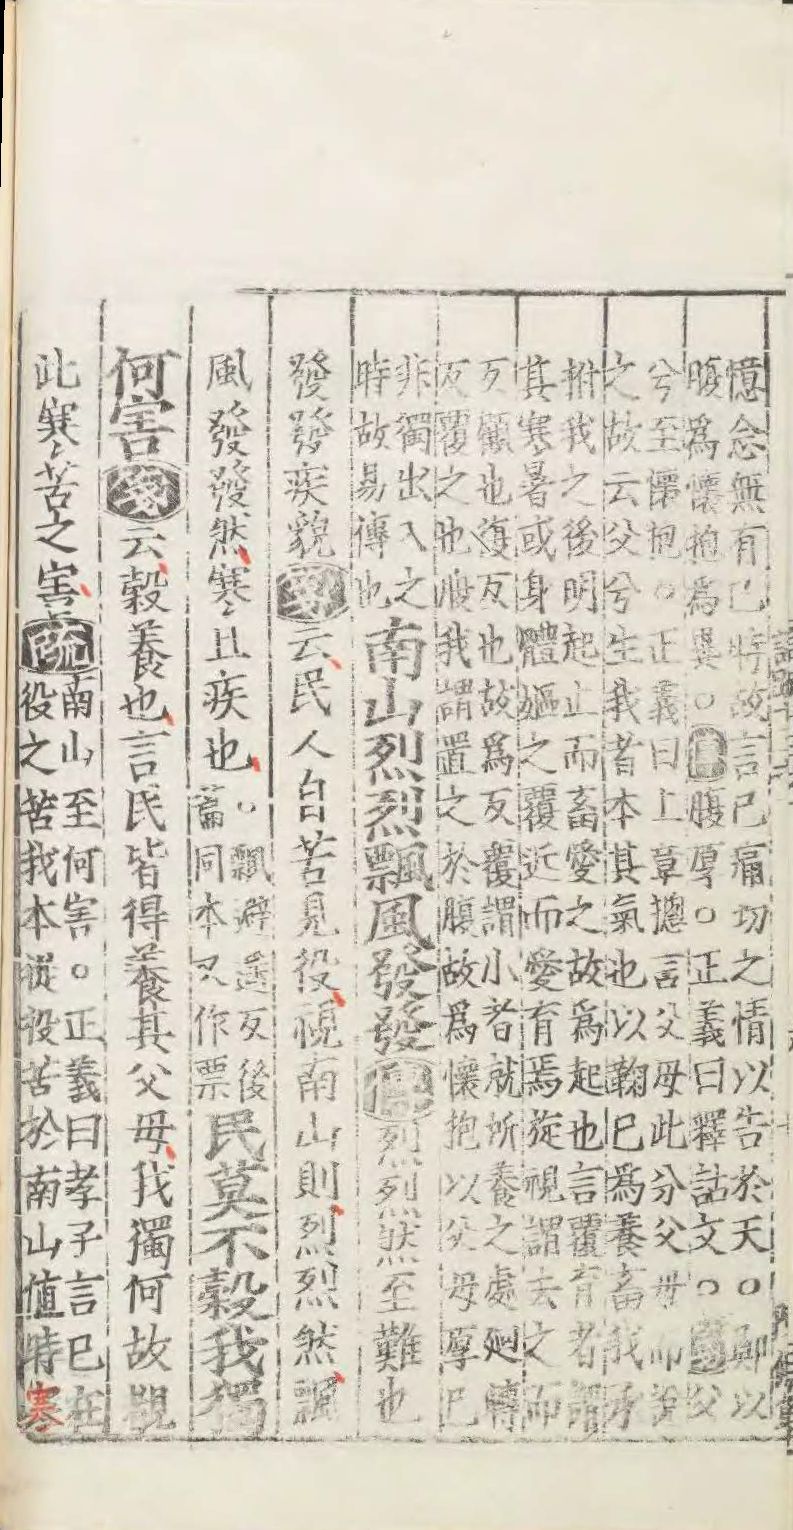 憶念無有已時故言已痛切之情以告於天○即以
腹為懷抱為異○箋腹厚○正義曰釋詁文○箋父
兮至懷抱○正義曰上章摠言父母此分父母而說
之故云父兮生我者本其氣也以鞠已為養畜我承
拊我之後明起止而畜愛之故為起也言覆育者謂
其寒暑或身體嫗之覆近而愛育焉旋視謂去之而
反顧也復反也故為反覆謂小者就所養之處廻轉
反覆之也腹我謂置之於腹故為懷抱以父母厚已
非獨出入之
時故易傳也
南山烈烈飄風發發傳烈烈然至難也
發發疾貌箋云民人自苦見役視南山則烈烈然飄
風發發然寒且疾也
○飄避遥反後
篇同本又作票
民莫不穀我獨
何害箋云穀養也言民皆得養其父母我獨何故覩
此寒苦之害疏
南山至何害○正義曰孝子言已在
役之苦我本從役苦於南山值時寒